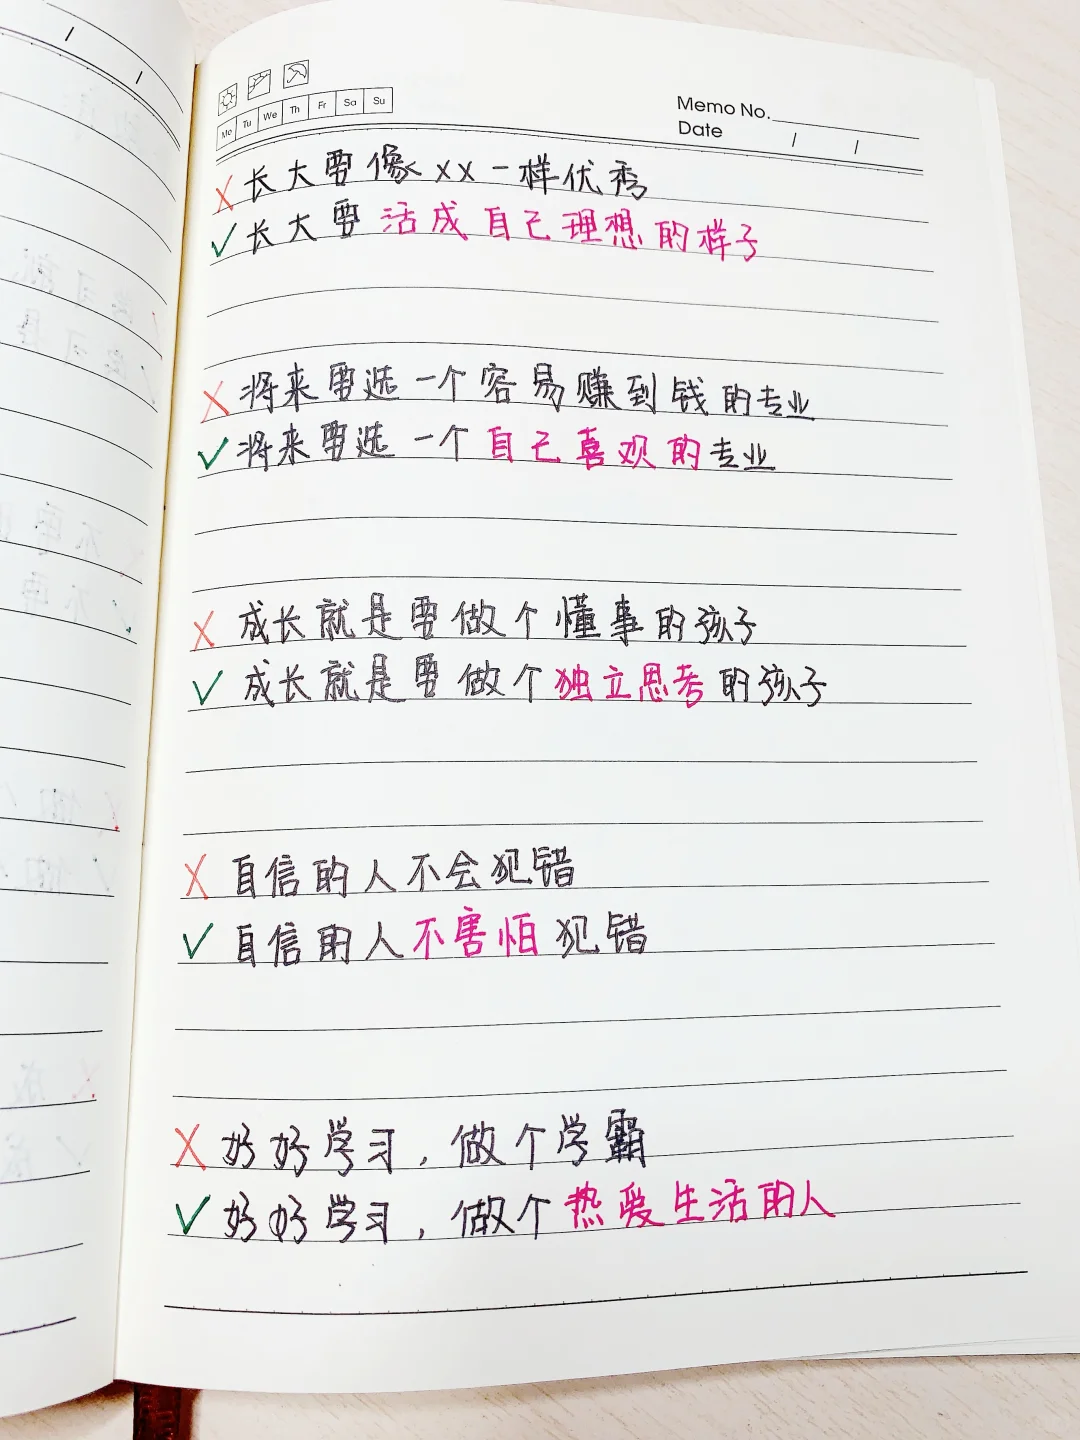 Mo Tu We Th Fr Sa Su
Memo No.
Date / /
✗ 长大要像xx一样优秀
✓ 长大要活成自己理想的样子
✗ 将来要选一个容易赚到钱的专业
✓ 将来要选一个自己喜欢的专业
✗ 成长就是要做个懂事的孩子
✓ 成长就是要做个独立思考的孩子
✗ 自信的人不会犯错
✓ 自信的人不害怕犯错
✗ 好好学习，做个学霸
✓ 好好学习，做个热爱生活的人